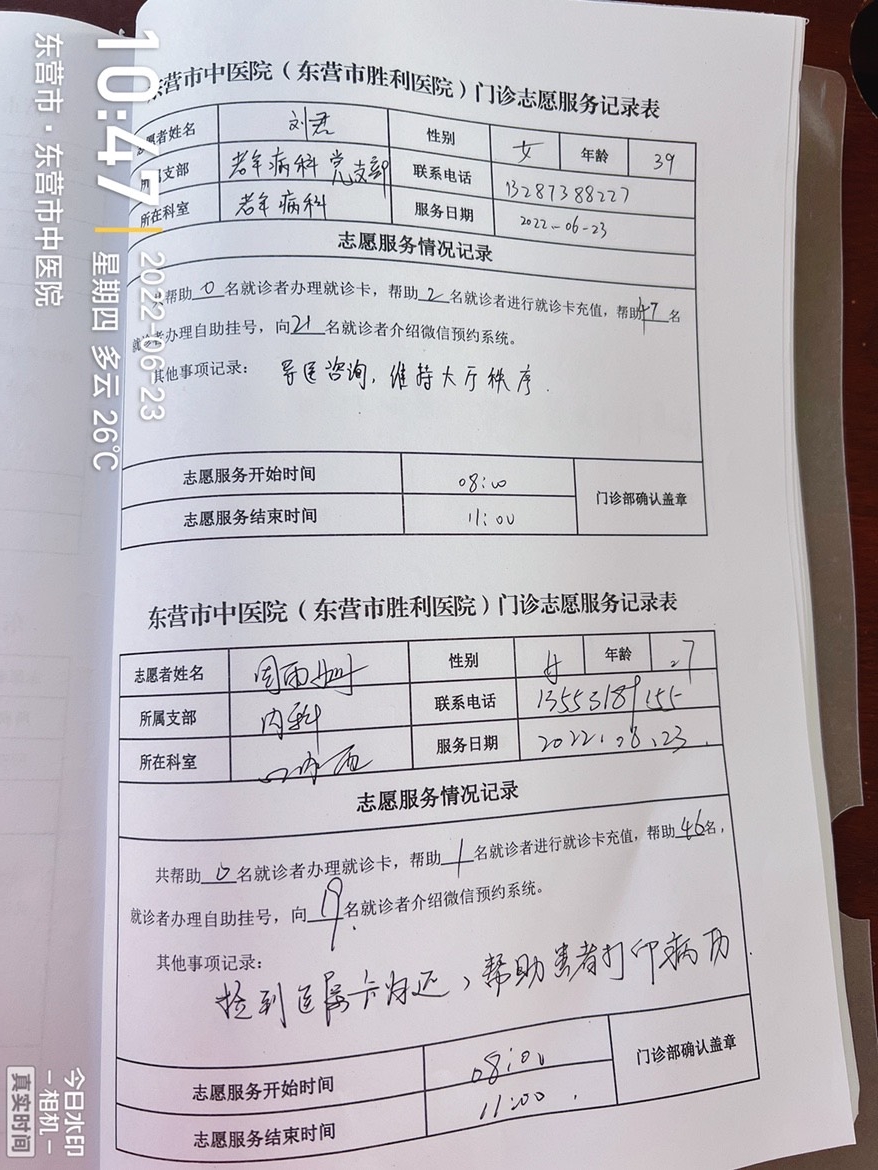 10:47
2022-06-23
星期四 多云 26℃
东营市·东营市中医院
东营市中医院（东营市胜利医院）门诊志愿服务记录表
志愿者姓名 刘君 性别 女 年龄 39
所属支部 老年病科党支部 联系电话 13287388227
所在科室 老年病科 服务日期 2022-06-23
志愿服务情况记录
共帮助 0 名就诊者办理就诊卡，帮助 2 名就诊者进行就诊卡充值，帮助 47 名
就诊者办理自助挂号，向 21 名就诊者介绍微信预约系统。
其他事项记录： 导医咨询，维持大厅秩序.
志愿服务开始时间 08:00
门诊部确认盖章
志愿服务结束时间 11:00
东营市中医院（东营市胜利医院）门诊志愿服务记录表
志愿者姓名 周雨 性别 女 年龄 27
所属支部 内科 联系电话 13553189155
所在科室 服务日期 2022.08.23.
志愿服务情况记录
共帮助 0 名就诊者办理就诊卡，帮助 1 名就诊者进行就诊卡充值，帮助 46 名，
就诊者办理自助挂号，向 19 名就诊者介绍微信预约系统。
其他事项记录：
捡到医保卡归还，帮助患者打印病历.
志愿服务开始时间 08:00
门诊部确认盖章
志愿服务结束时间 11:00.
今日水印
-相机-
真实时间